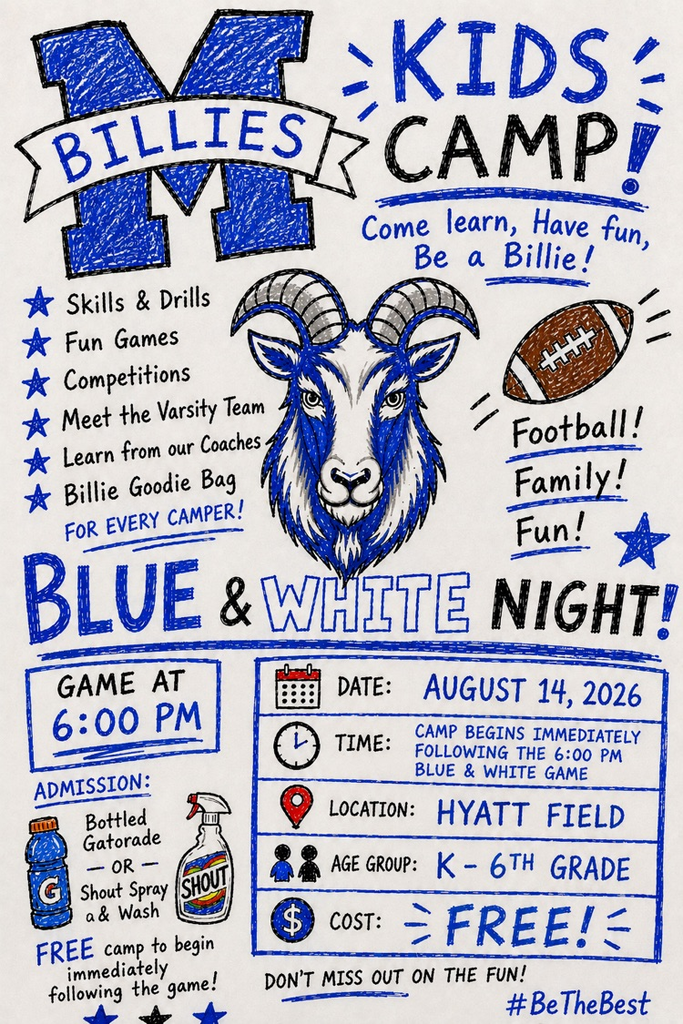 M
BILLIES
KIDS
CAMP!
Come learn, Have fun,
Be a Billie!
Skills & Drills
Fun Games
Competitions
Meet the Varsity Team
Learn from our Coaches
Billie Goodie Bag
FOR EVERY CAMPER!
Football!
Family!
Fun!
BLUE & WHITE NIGHT!
GAME AT
6:00 PM
ADMISSION:
Bottled
Gatorade
— OR —
Shout Spray
a & Wash
G
SHOUT
FREE camp to begin
immediately
following the game!
DATE: AUGUST 14, 2026
TIME: CAMP BEGINS IMMEDIATELY
FOLLOWING THE 6:00 PM
BLUE & WHITE GAME
LOCATION: HYATT FIELD
AGE GROUP: K - 6TH GRADE
$ COST: FREE!
DON'T MISS OUT ON THE FUN!
#BeTheBest